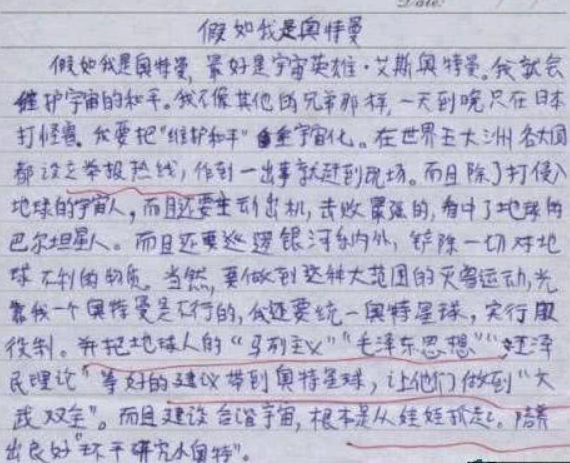 Date:
假如我是奥特曼
假如我是奥特曼,最好是宇宙英雄·艾斯奥特曼。我就会
维护宇宙的和平。我不像其他的兄弟那样,一天到晚只在日本
打怪兽。我要把"维护和平"全宇宙化。在世界五大洲各大国
都设立举报热线,作到一出事就赶到现场。而且除了打侵入
地球的宇宙人,而且还要主动出机,击败最强的,看中了地球的
巴尔坦星人。而且还要巡逻银河系内外,铲除一切对地
球不利的物质。当然,要做到这种大范围的灭兽运动,光
靠我一个奥特曼是不行的,我还要统一奥特星球,实行服
役制。并把地球人的"马列主义""毛泽东思想""江泽
民理论"等好的建议带到奥特星球,让他们做到"文
武双全"。而且建设合谐宇宙,根本是从娃娃抓起。陪养
出良好"环干研究小奥特"。